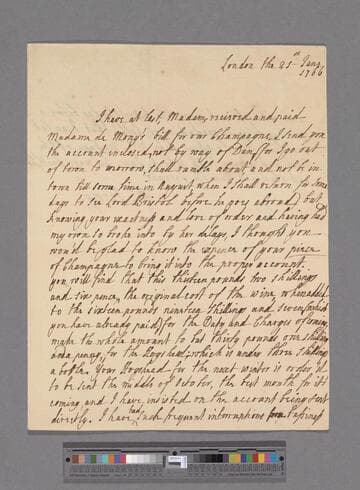 London the 25th June
1766
I have at last, Madam, received and paid
Madame de Mony's bill for our Champagne, I send you
the account enclosed, not by way of Dun, for I go out
of town to morrow, shall ramble about and not be in
town till some time in August, when I shall return for some
days to see Lord Bristol before he goes abroad, but
knowing your exactness and love of order and having had
my own so broke into by her delays, I thought you
wou'd be glad to know the expence of your
of Champagne to bring it into the proper account.
you will find that this thirteen pounds two shillings
and six pence, the original cost of the wine, when added
to the sixteen pounds nineteen Shillings and seven (which
you have already paid) for the Duty and Charges of coming
make the whole amount to but thirty pounds one shilling
and a penny, for the Hogshead, which is under three shillings
a bottle. Your Hogshead for the next winter is order'd
to be sent the middle of October, the best month for it's
coming, and I have insisted on the account being sent
directly. I have had such frequent interruptions from business